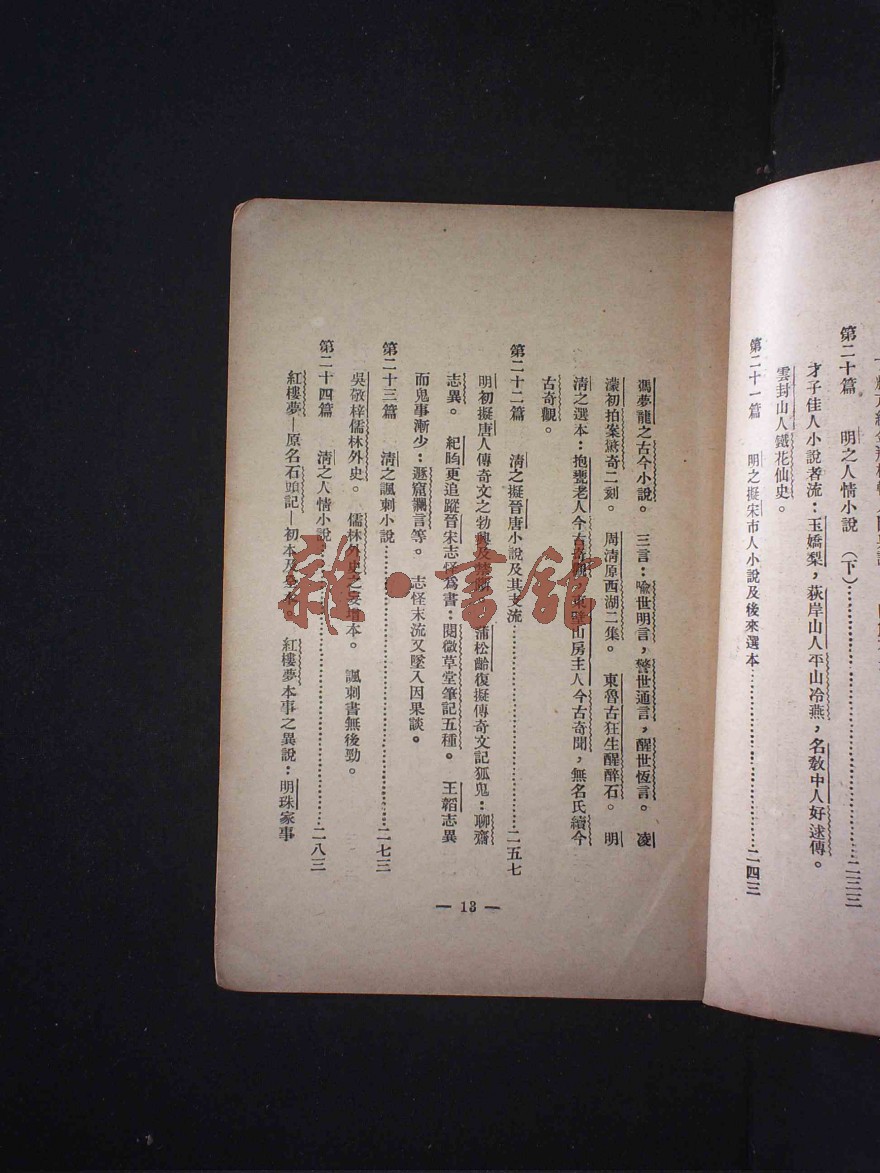 第二十篇　明之人情小說（下）……………………二三三
才子佳人小說著流：玉嬌梨，荻岸山人平山冷燕，名教中人好逑傳。
雲封山人鐵花仙史。
第二十一篇　明之擬宋市人小說及後來選本……………………二四三
馮夢龍之古今小說。　三言：喻世明言，警世通言，醒世恆言。　凌
濛初拍案驚奇二刻。　周清原西湖二集。　東魯古狂生醒醉石。　明
清之選本：抱甕老人今古奇觀，東壁山房主人今古奇聞，無名氏續今
古奇觀。
第二十二篇　清之擬晉唐小說及其支流……………………二五七
明初擬唐人傳奇文之勃興及禁　蒲松齡復擬傳奇文記狐鬼：聊齋
志異。　紀昀更追蹤晉宋志怪爲書：閱微草堂筆記五種。　王韜志異
而鬼事漸少：遯窟讕言等。　志怪末流又墜入因果談。
第二十三篇　清之諷刺小說……………………二七三
吳敬梓儒林外史。　儒林外史之妄增本。　諷刺書無後勁。
第二十四篇　清之人情小說……………………二八三
紅樓夢—原名石頭記—初本及全本。　紅樓夢本事之異說：明珠家事
— 13 —
雜·書館